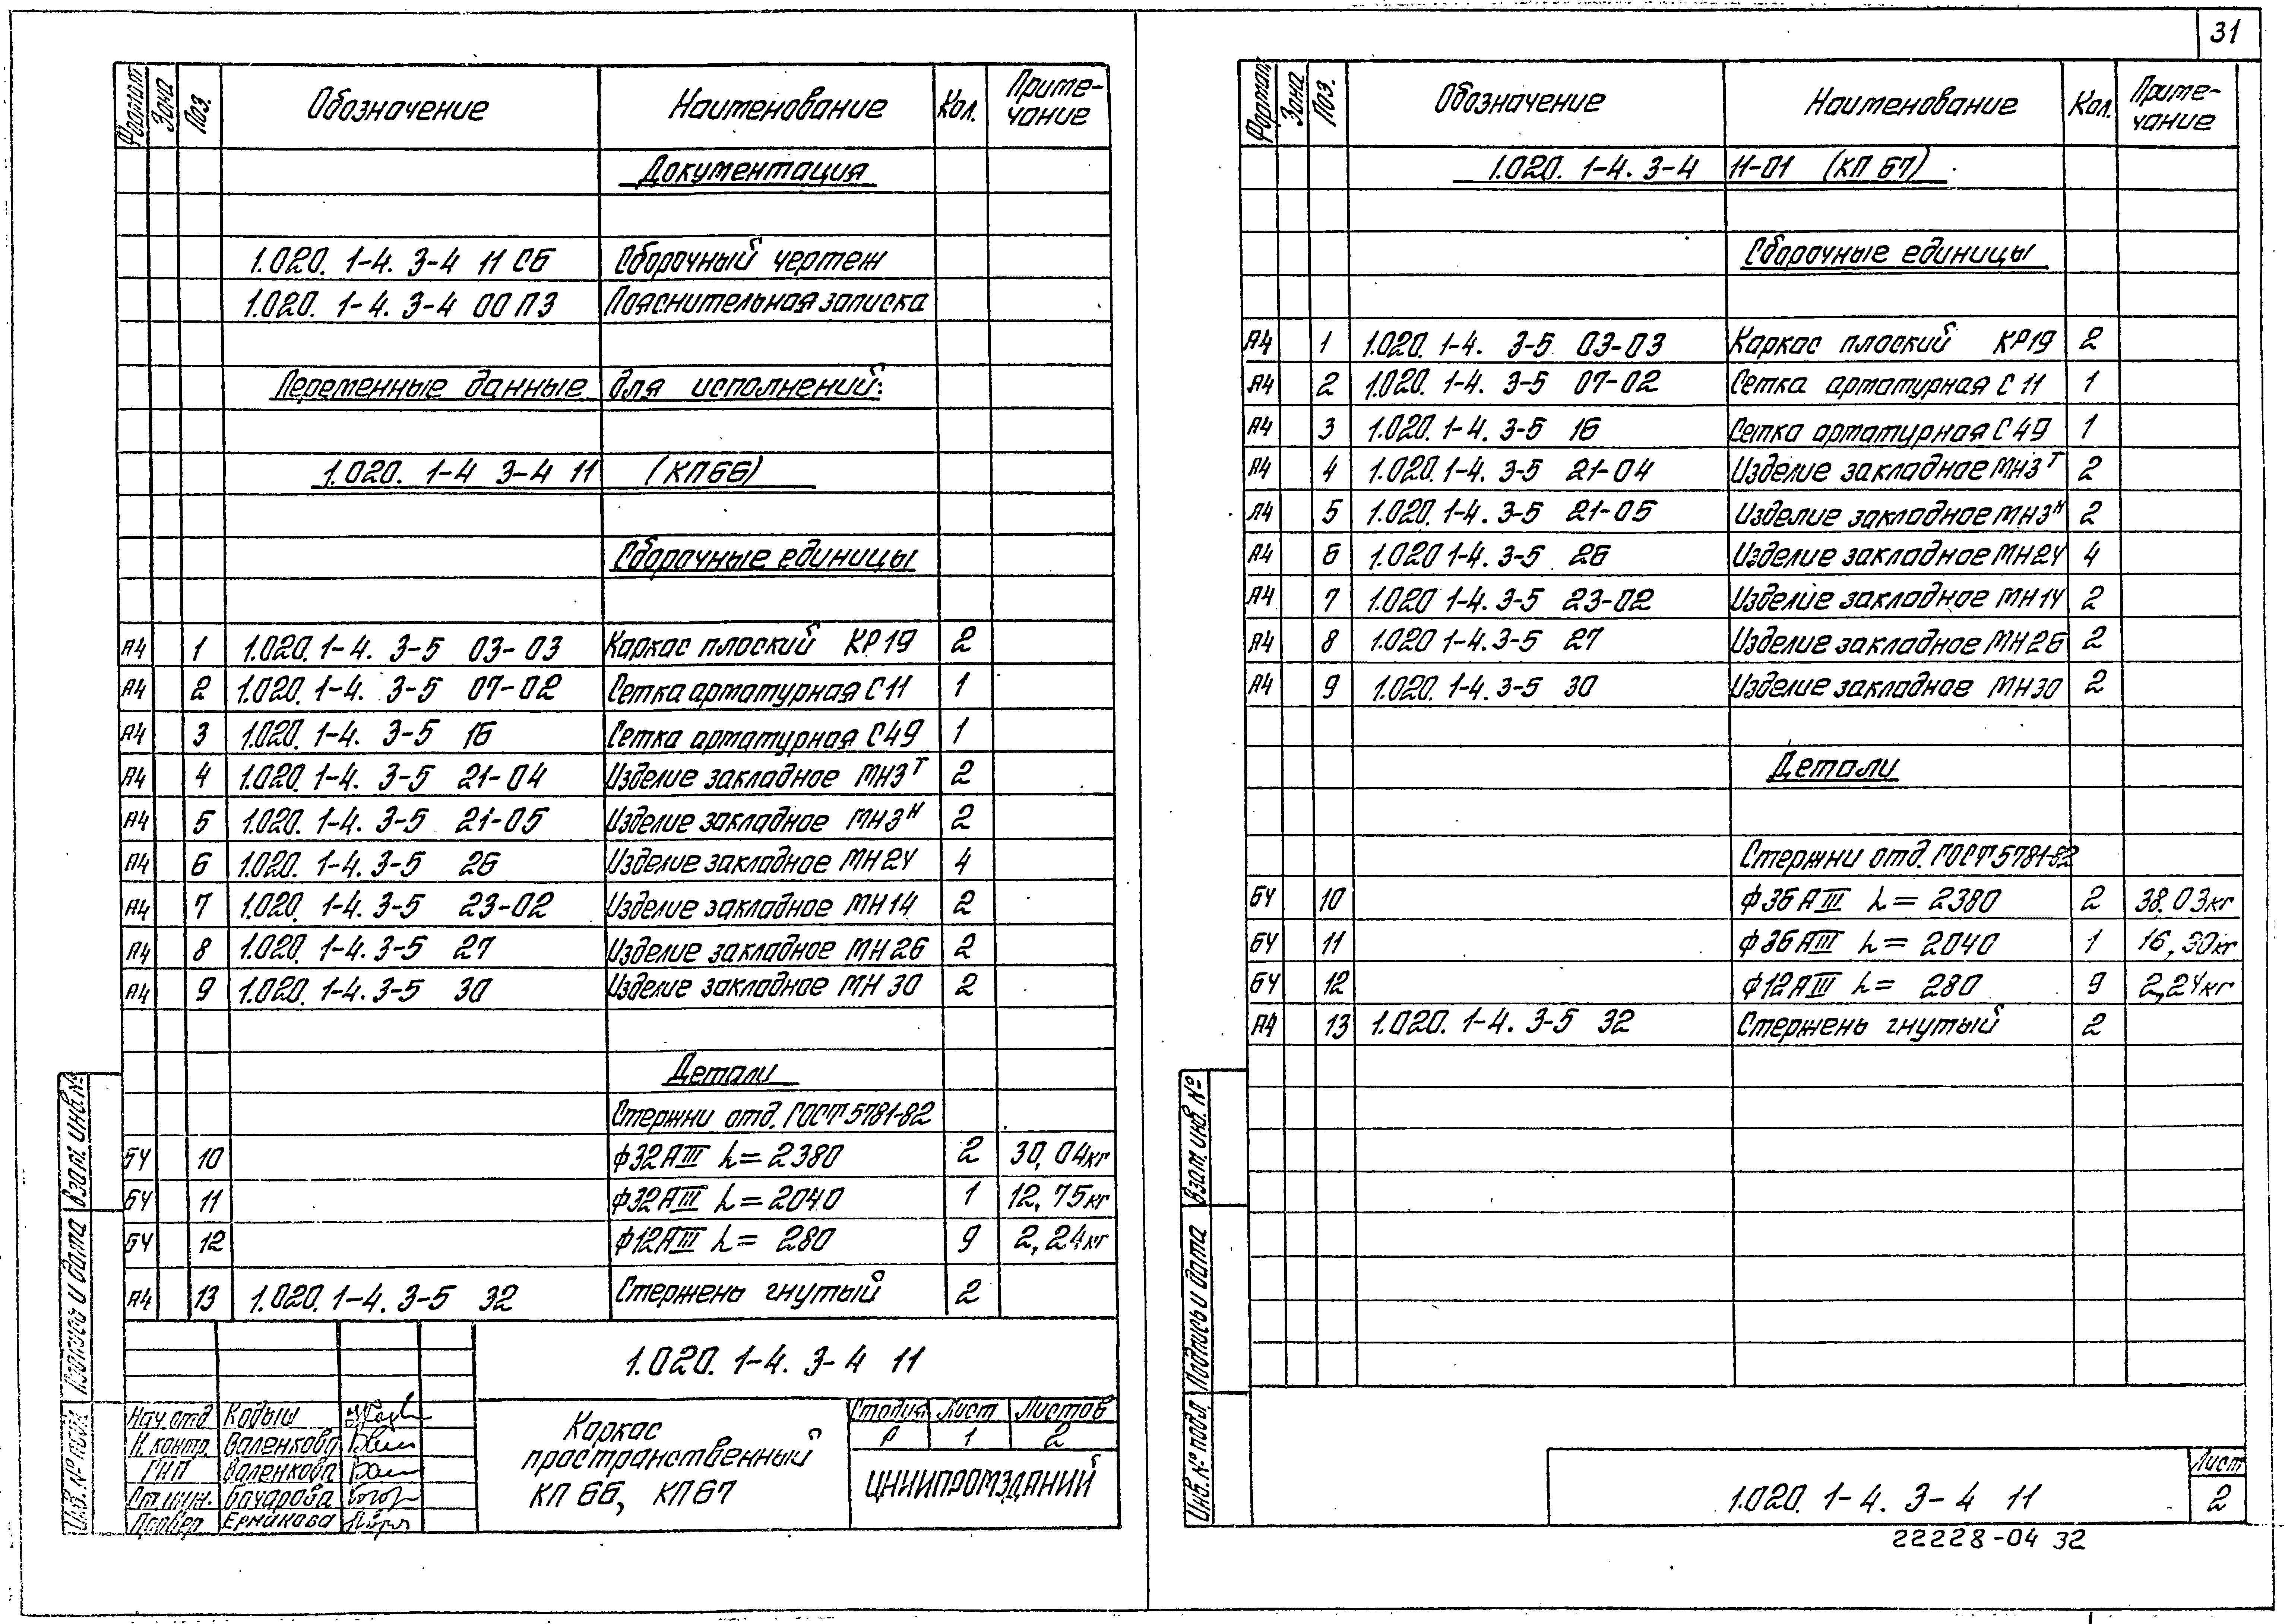 31
Формат Зона Поз. Обозначение Наименование Кол. Приме-
чание
Документация
1.020. 1-4. 3-4 11 СБ Сборочный чертеж
1.020. 1-4. 3-4 00 ПЗ Пояснительная записка
Переменные данные для исполнений:
1.020. 1-4 3-4 11 (КП66)
Сборочные единицы
А4 1 1.020. 1-4. 3-5 03-03 Каркас плоский КР19 2
А4 2 1.020. 1-4. 3-5 07-02 Сетка арматурная С11 1
А4 3 1.020. 1-4. 3-5 16 Сетка арматурная С49 1
А4 4 1.020. 1-4. 3-5 21-04 Изделие закладное МН3Т 2
А4 5 1.020. 1-4. 3-5 21-05 Изделие закладное МН3Н 2
А4 6 1.020. 1-4. 3-5 26 Изделие закладное МН24 4
А4 7 1.020. 1-4. 3-5 23-02 Изделие закладное МН14 2
А4 8 1.020. 1-4. 3-5 27 Изделие закладное МН26 2
А4 9 1.020. 1-4. 3-5 30 Изделие закладное МН 30 2
Детали
Стержни отд. ГОСТ 5781-82
БЧ 10 Ф32АIII L=2380 2 30,04кг
БЧ 11 Ф32АIII L=2040 1 12,75кг
БЧ 12 Ф12АIII L= 280 9 2,24кг
А4 13 1.020. 1-4. 3-5 32 Стержень гнутый 2
1.020. 1-4. 3-4 11
Нач. отд. Кодыш
Н. контр. Валенкова
ГИП Валенкова
Ст. инж. Бачарова
Провер. Ермакова
Каркас
пространственный
КП 66, КП67
Стадия Лист Листов
Р 1 2
ЦНИИПРОМЗДАНИЙ
Инв. № подл. Подпись и дата Взам. инв. №
Формат Зона Поз. Обозначение Наименование Кол. Приме-
чание
1.020. 1-4. 3-4 11-01 (КП 67)
Сборочные единицы
А4 1 1.020. 1-4. 3-5 03-03 Каркас плоский КР19 2
А4 2 1.020. 1-4. 3-5 07-02 Сетка арматурная С 11 1
А4 3 1.020. 1-4. 3-5 16 Сетка арматурная С 49 1
А4 4 1.020. 1-4. 3-5 21-04 Изделие закладное МН3Т 2
А4 5 1.020. 1-4. 3-5 21-05 Изделие закладное МН3Н 2
А4 6 1.020 1-4. 3-5 26 Изделие закладное МН24 4
А4 7 1.020 1-4. 3-5 23-02 Изделие закладное МН14 2
А4 8 1.020 1-4. 3-5 27 Изделие закладное МН26 2
А4 9 1.020. 1-4. 3-5 30 Изделие закладное МН30 2
Детали
Стержни отд. ГОСТ 5781-82
БЧ 10 Ф36АIII L=2380 2 38.03кг
БЧ 11 Ф36АIII L=2040 1 16,30кг
БЧ 12 Ф12АIII L= 280 9 2,24кг
А4 13 1.020. 1-4. 3-5 32 Стержень гнутый 2
Инв. № подл. Подпись и дата Взам. инв. №
1.020. 1-4. 3-4 11
Лист
2
22228-04 32